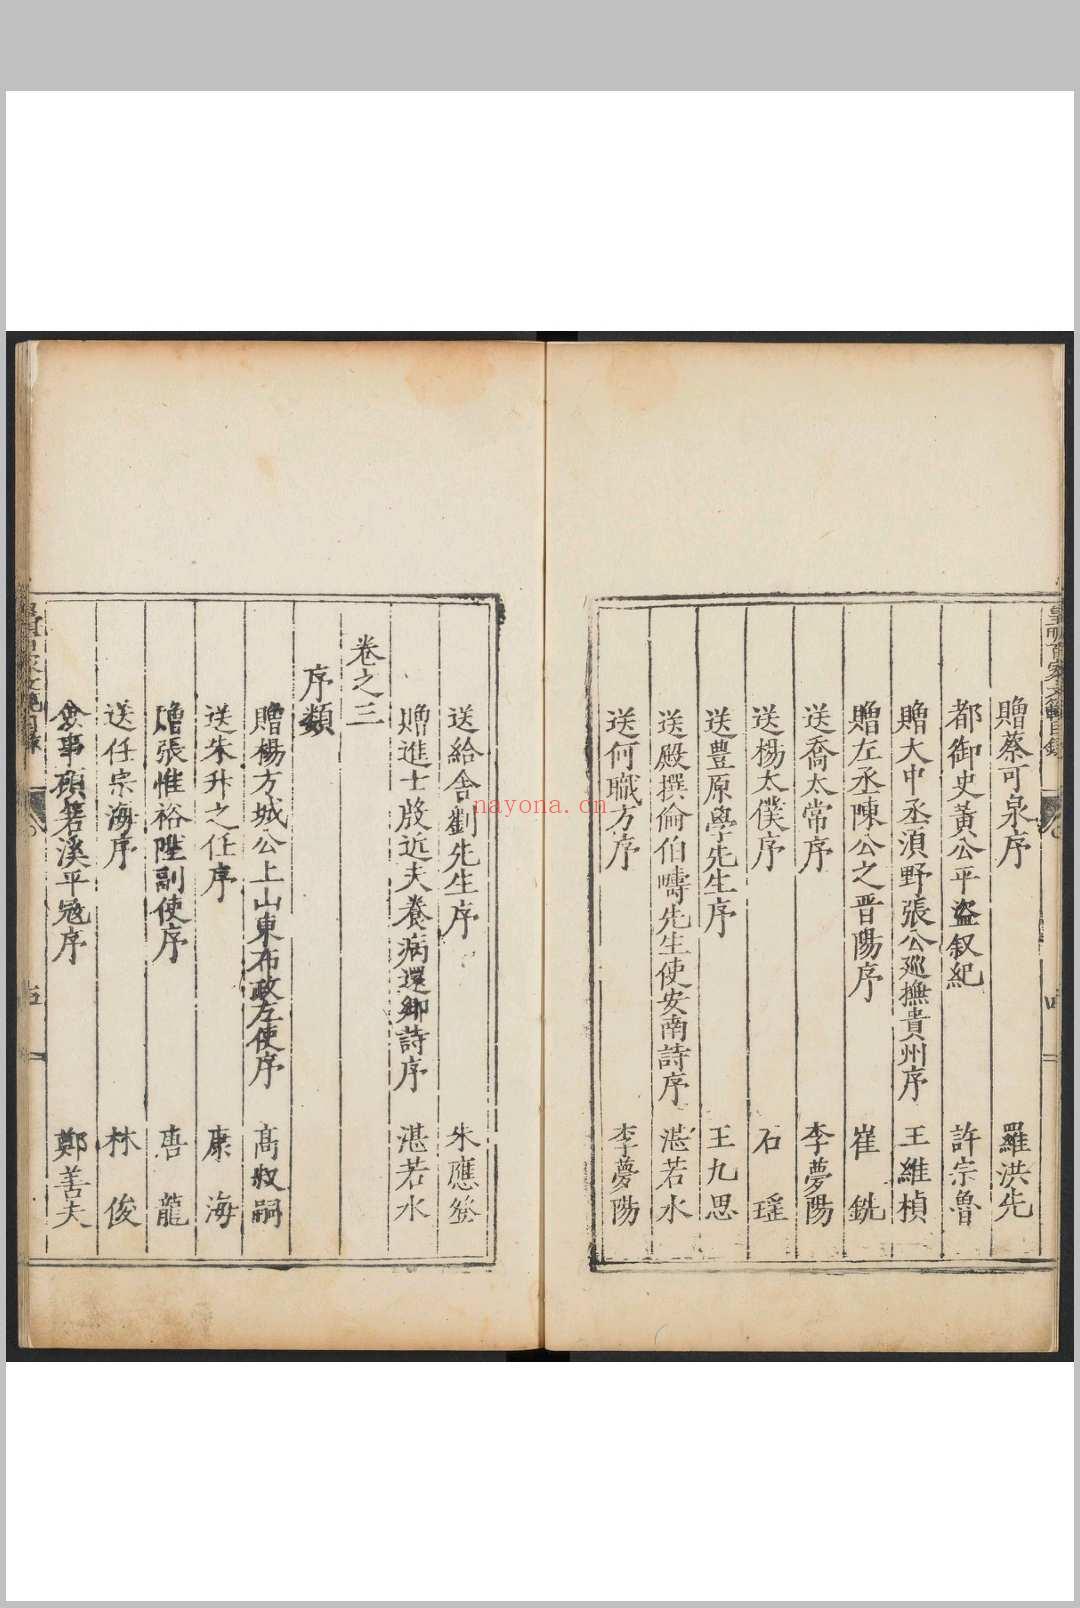 贈蔡可泉序 羅洪先
都御史黃公平盜叙紀 許宗魯
贈大中丞湏野張公廵撫貴州序 王維楨
贈左丞陳公之晋陽序 崔銑
送喬太常序 李夢陽
送楊太僕序 石瑤
送豊原學先生序 王九思
送殿撰倫伯疇先生使安南詩序 湛若水
送何職方序 李夢陽
送給舍劉先生序 朱應登
贈進士殷近夫養病還鄉詩序 湛若水
卷之三
序類
贈楊方城公上山東布政左使序 髙叔嗣
送朱升之任序 康海
贈張惟裕陞副使序 唐龍
送任宗海序 林俊
僉事顧箬溪平冦序 鄭善夫
nayona.cn